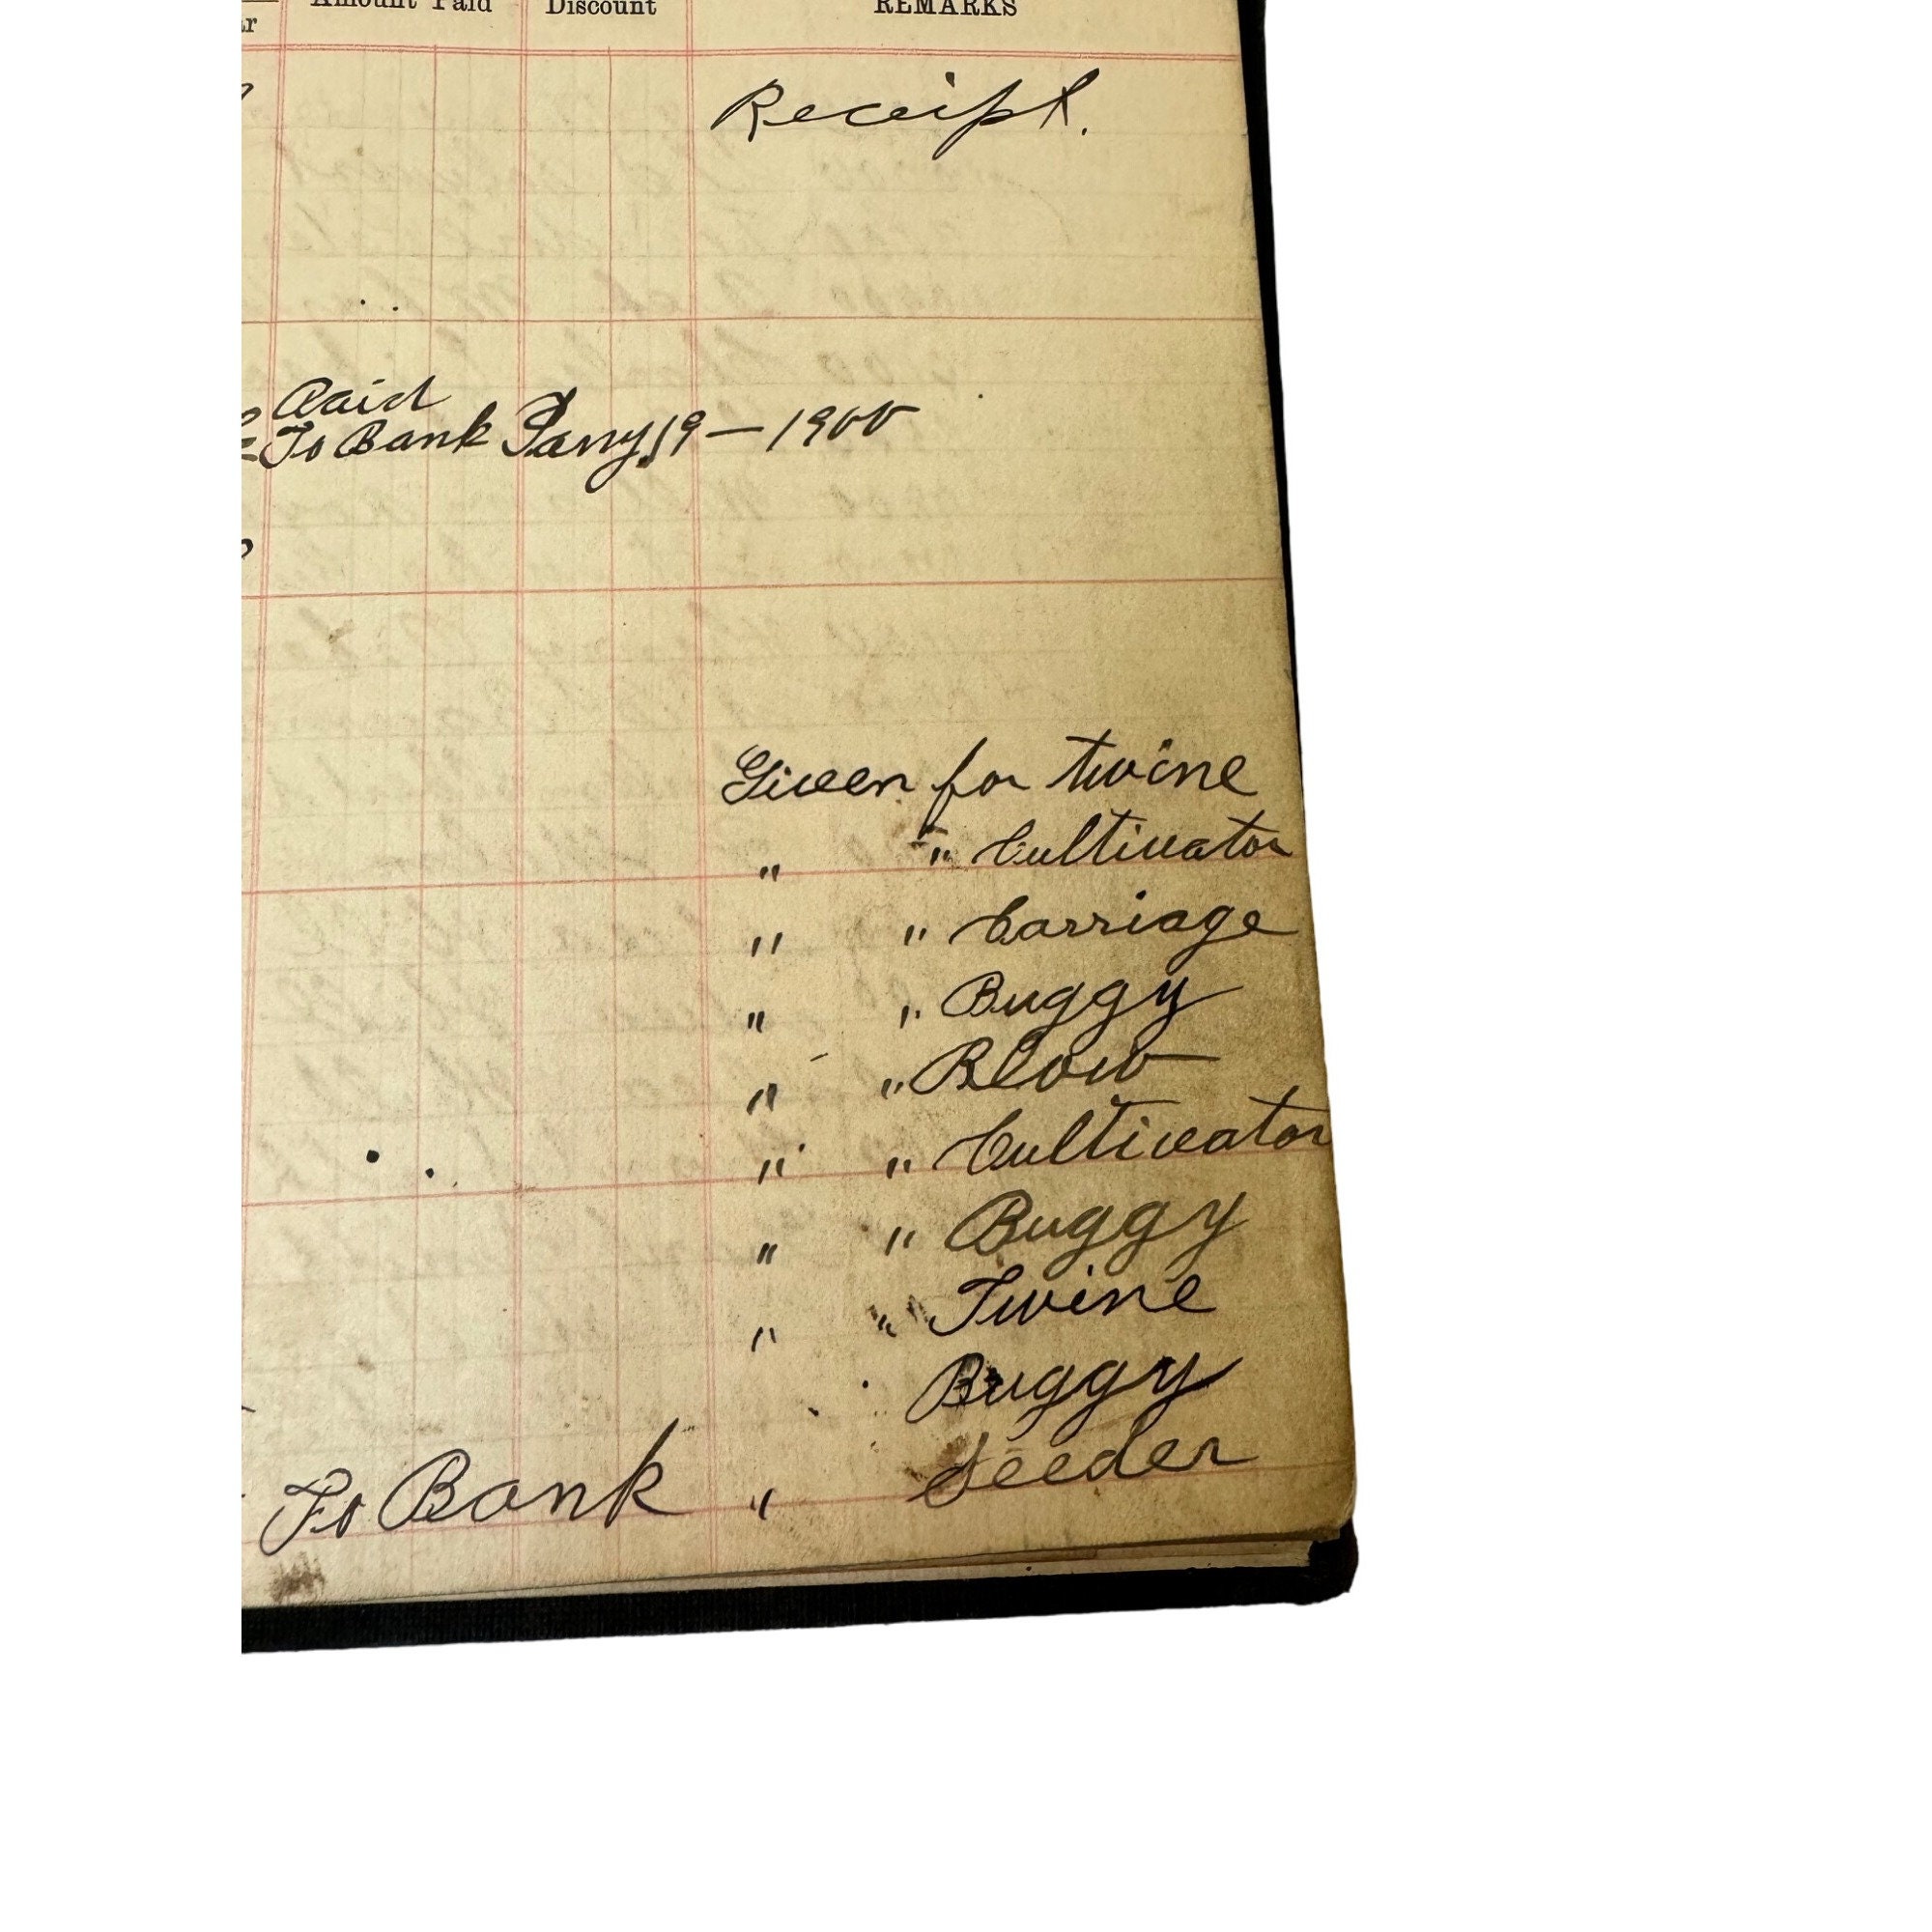 Amount Paid Discount REMARKS
Receipt.
Paid
To Bank Jany 19 — 1900
Given for twine
" " Cultivator
" " Carriage
" " Buggy
" " Plow
" " Cultivator
" " Buggy
" " Twine
Buggy
To Bank " Seeder